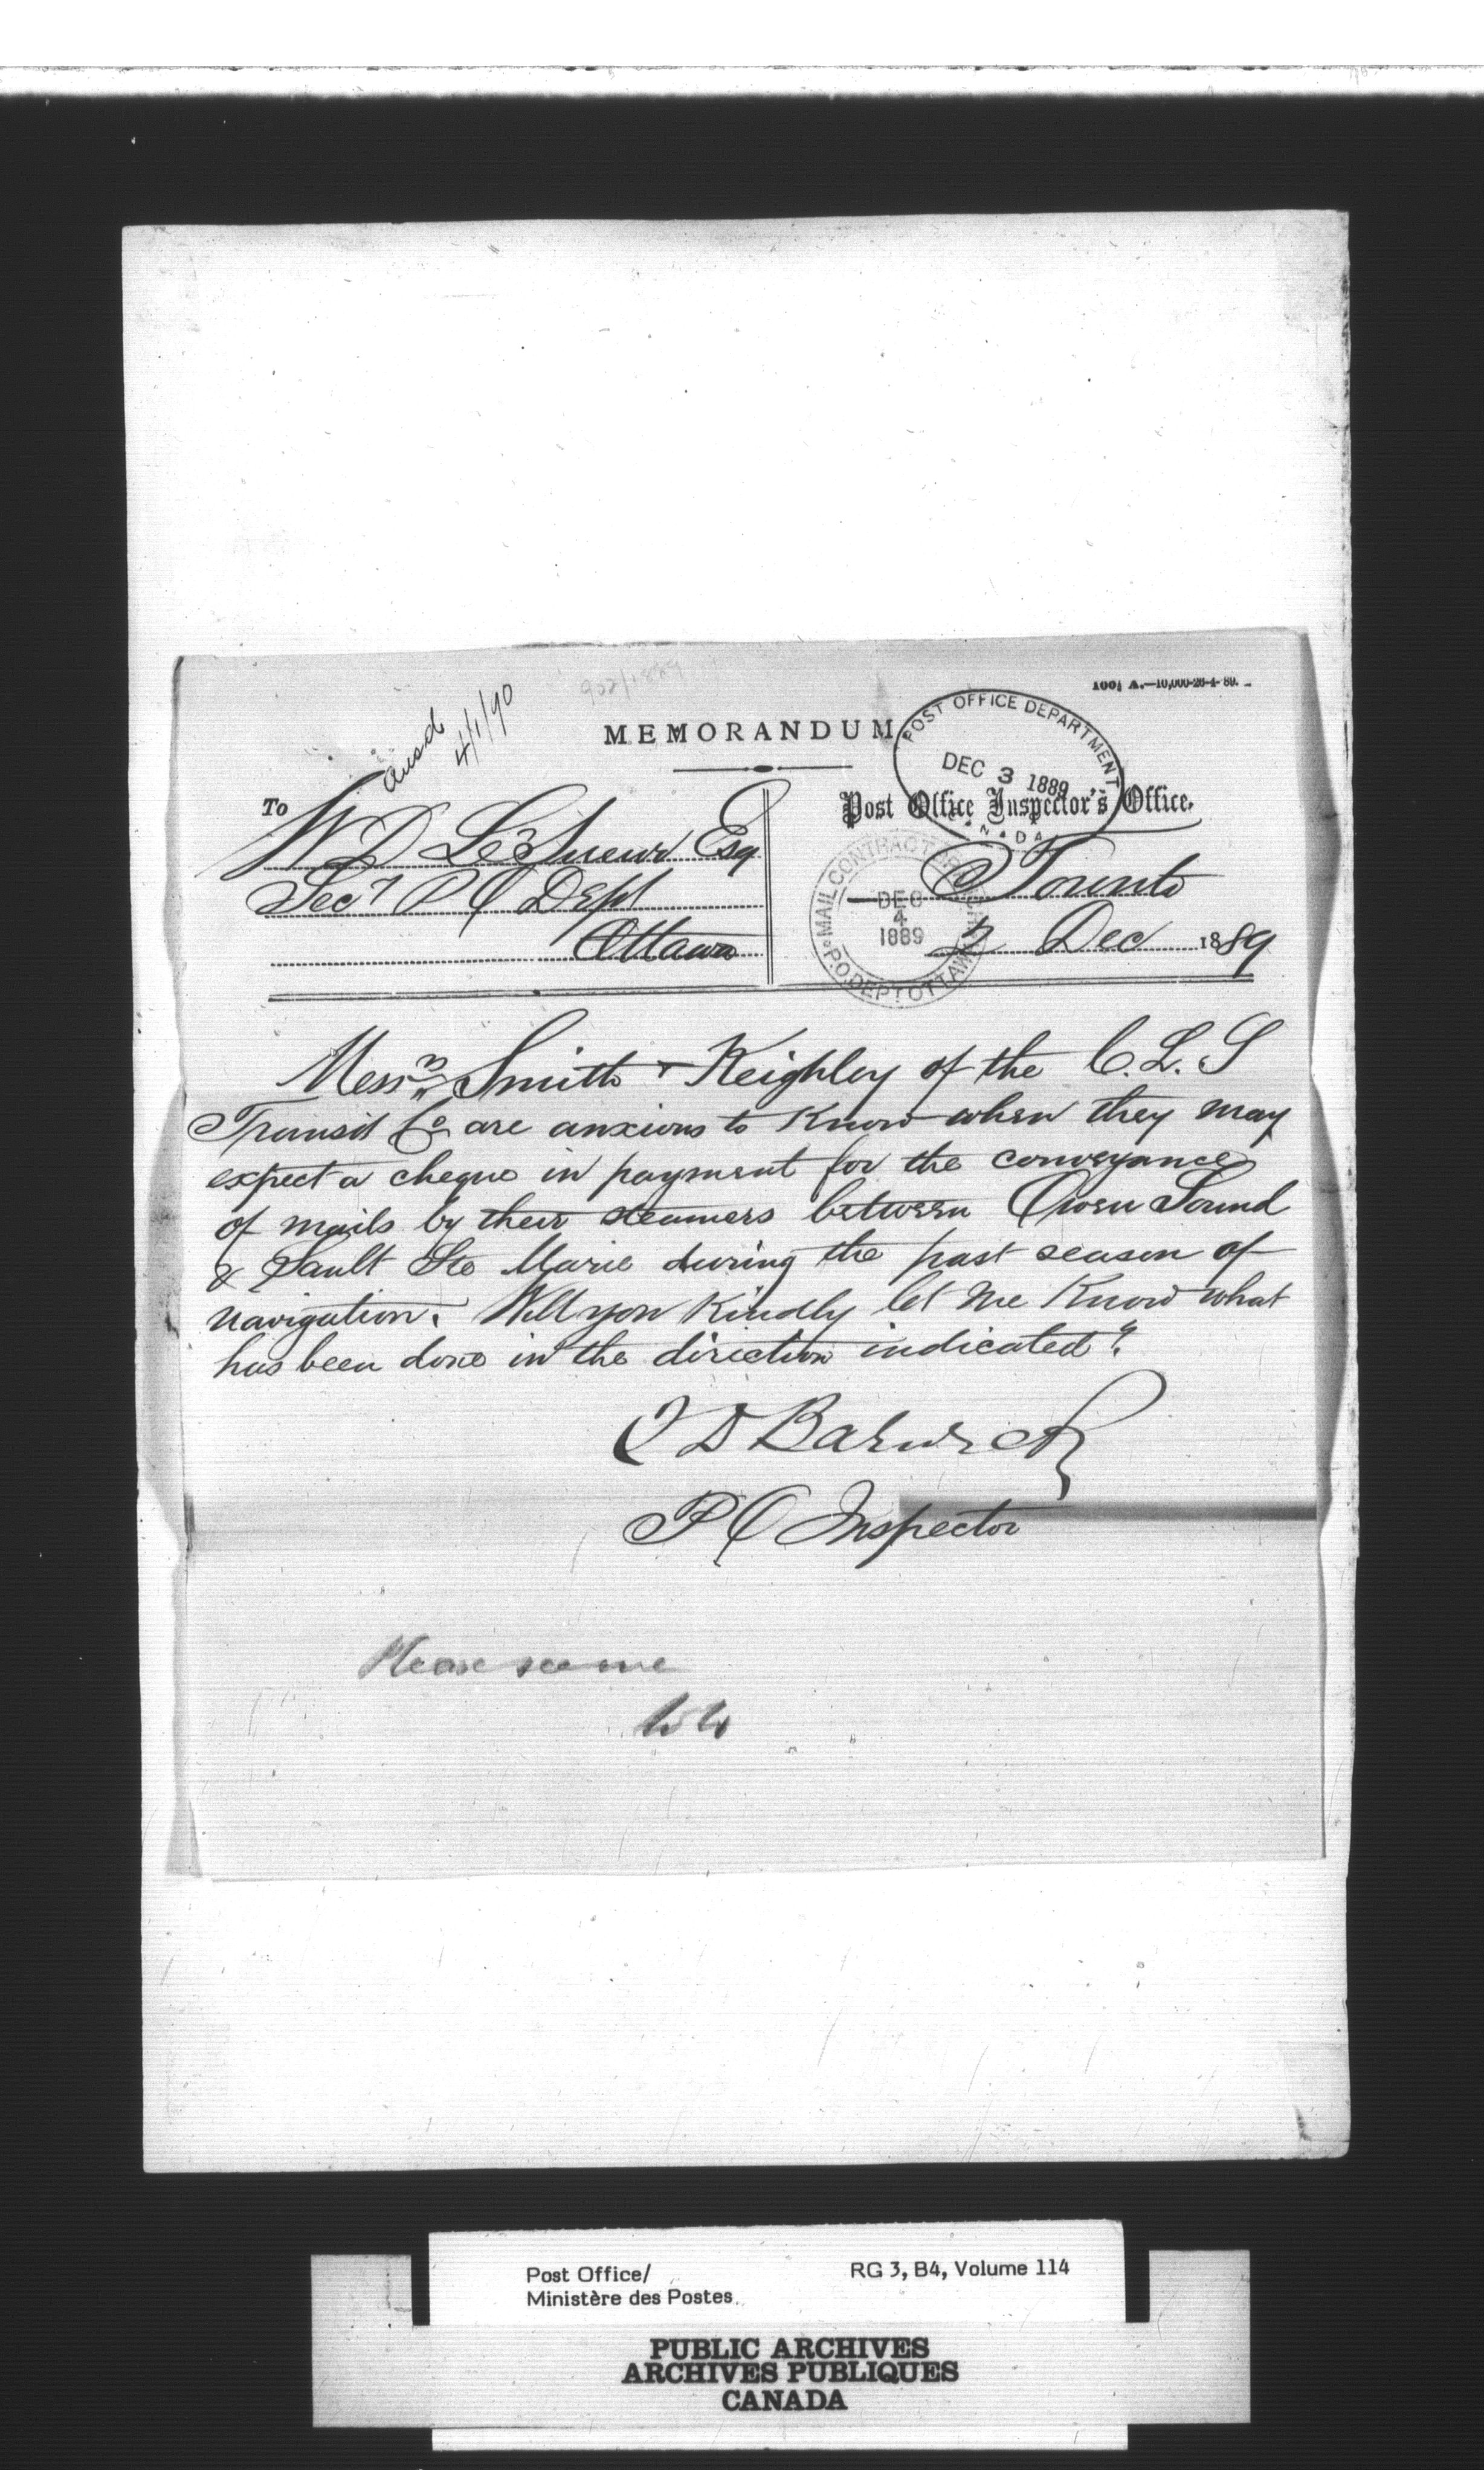 ansd
4/1/90
902/1889
100½ A.—10,000-26-4-89.
MEMORANDUM
POST OFFICE DEPARTMENT
DEC 3 1889
CANADA
Post Office Inspector's Office,
To W D LeSueur Esq
Secy P O Dept
Ottawa
MAIL CONTRACT BRANCH
DEC
4
1889
P.O. DEPT OTTAWA
Toronto
2 Dec 1889
Messrs Smith & Keighley of the C. L. S
Transit Co are anxious to know when they may
expect a cheque in payment for the conveyance
of mails by their steamers between Owen Sound
& Sault Ste Marie during the past season of
navigation. Will you kindly let me know what
has been done in the direction indicated?
D Barwick
P O Inspector
Please see me
Post Office/
Ministère des Postes
RG 3, B4, Volume 114
PUBLIC ARCHIVES
ARCHIVES PUBLIQUES
CANADA